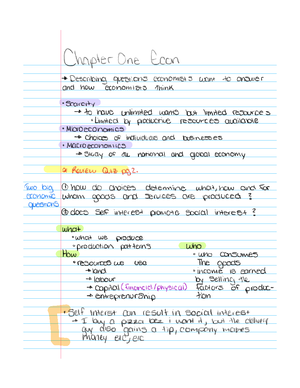 Chapter One Econ
→ Describing questions economists want to answer
and how economists think
• Scarcity
→ to have unlimited wants but limited resources
• Limited by productive resources available
• Microeconomics
→ Choices of individuals and businesses
• Macroeconomics
→ Study of the national and global economy
Review Quiz pg 2.
Two big economic questions
① how do choices determine what, how and for
whom goods and services are produced?
② does self interest promote social interest?
What
• what we produce
• production patterns
How
• resources we use
→ land
→ labour
→ capital (financial/physical)
→ entreprenorship
Who
• who consumes
The goods
• income is earned
by selling the
factors of produc-
tion
• Self interest can result in social interest
→ I buy a pizza bec i want it, but the delivery
guy also gains a tip, company makes
money etc, etc